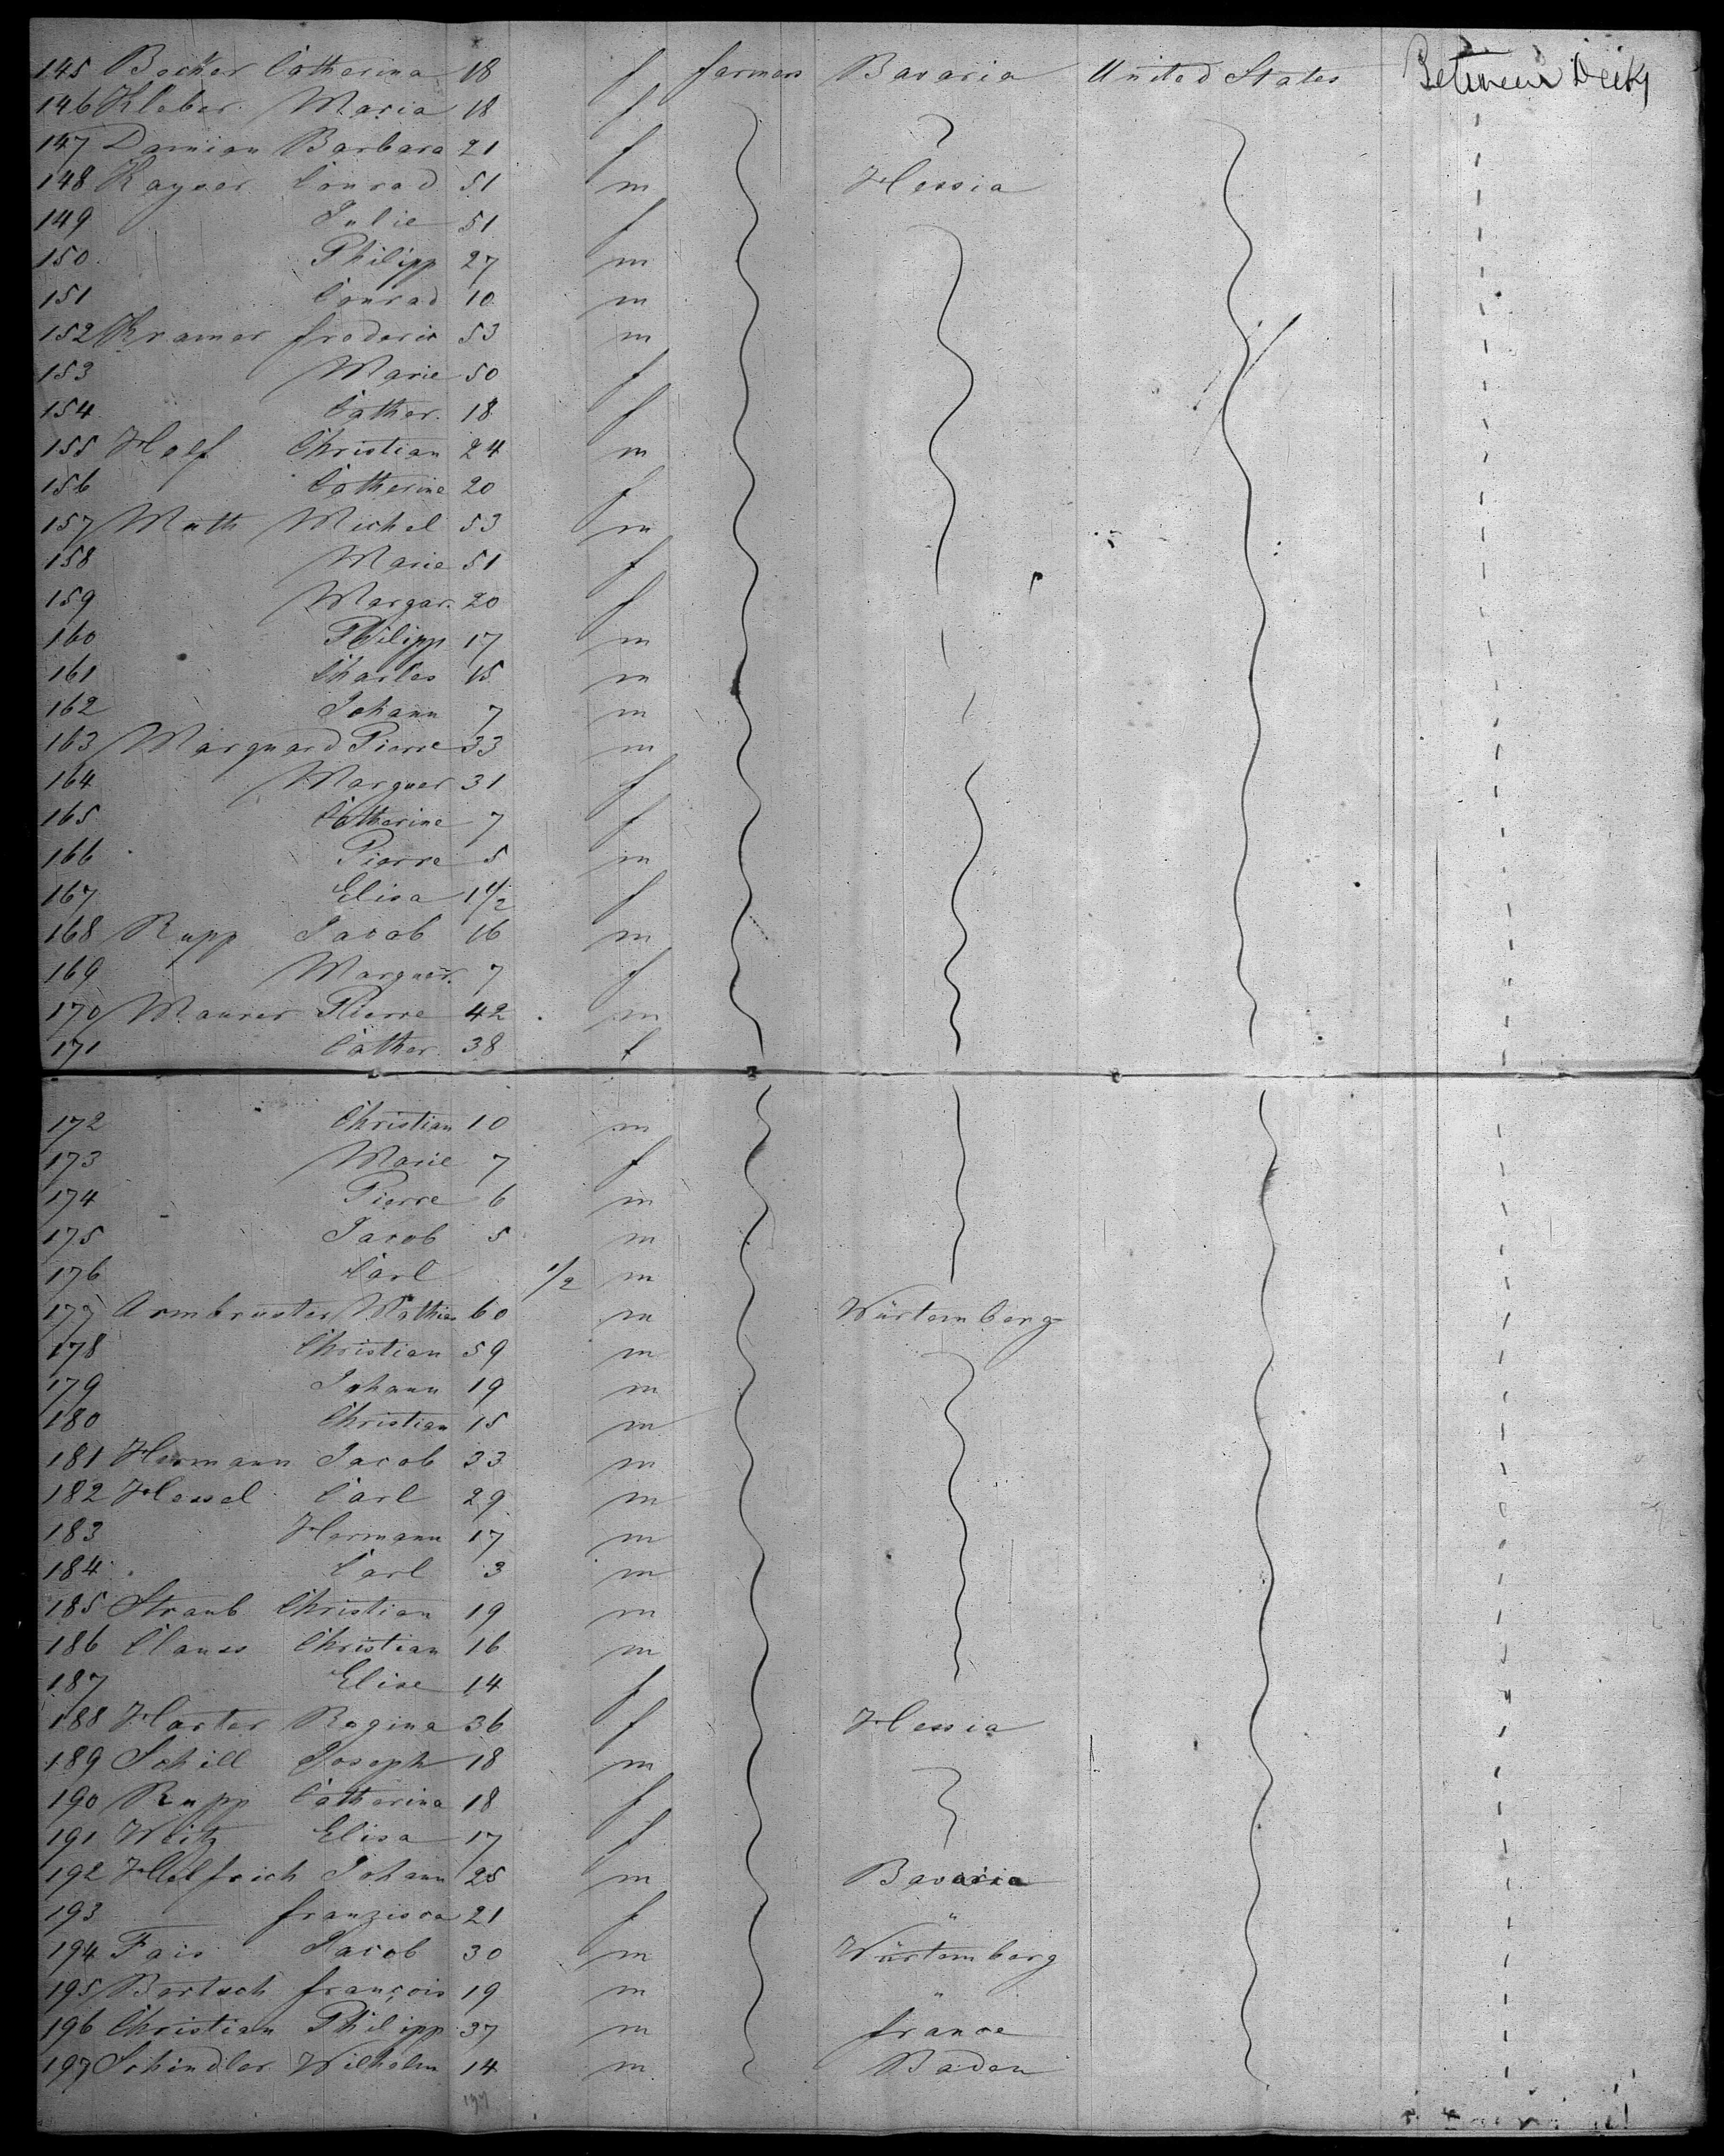 145 Becker Catherina 18 f farmers Bavaria United States Between Decks
146 Kleber Maria 18 f
147 Damian Barbara 21 f
148 Kayser Conrad 51 m Hessia
149 Julie 51 f
150 Philipp 27 m
151 Conrad 10 m
152 Kramer frederic 53 m
153 Marie 50 f
154 Cather. 18 f
155 Holf Christian 24 m
156 Catherine 20 f
157 Muth Michel 53 m
158 Marie 51 f
159 Margar. 20 f
160 Philipp 17 m
161 Charles 15 m
162 Johann 7 m
163 Marquard Pierre 33 m
164 Marguer 31 f
165 Catherine 7 f
166 Pierre 5 m
167 Elisa 1 1/2 f
168 Rupp Jacob 16 m
169 Marguer. 7 f
170 Maurer Pierre 42 m
171 Cather. 38 f
172 Christian 10 m
173 Marie 7 f
174 Pierre 6 m
175 Jacob 5 m
176 Carl 1/2 m
177 Armbruster Mathias 60 m Würtemberg
178 Christian 59 m
179 Johann 19 m
180 Christian 15 m
181 Hermann Jacob 33 m
182 Hessel Carl 29 m
183 Hermann 17 m
184 Carl 3 m
185 Straub Christian 19 m
186 Clauss Christian 16 m
187 Elise 14 f
188 Harter Regina 36 f Hessia
189 Schill Joseph 18 m
190 Rupp Catherina 18 f
191 Weitz Elisa 17 f
192 Helfrich Johann 25 m Bavaria
193 franzisca 21 f "
194 Fais Jacob 30 m Würtemberg
195 Bertsch françois 19 m "
196 Christian Philipp 37 m france
197 Schindler Wilhelm 14 m Baden
197